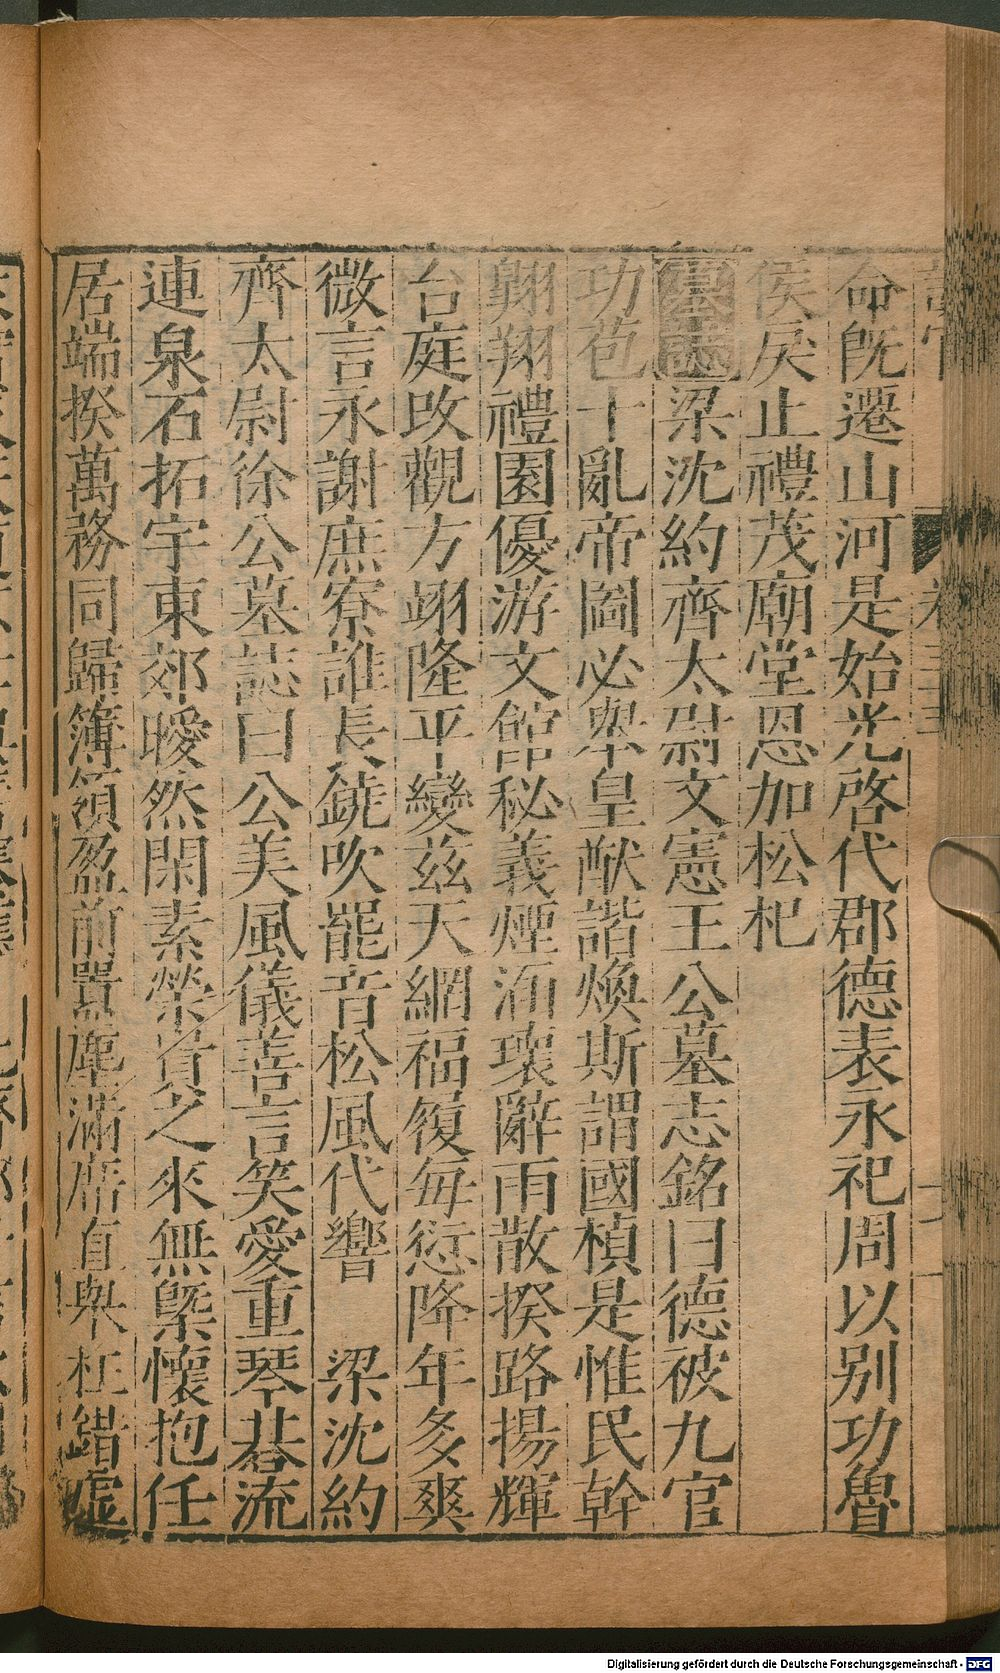 命旣遷山河是始光啓代郡德表永祀周以別功魯
侯戾止禮茂廟堂恩加松杞
墓誌梁沈約齊太尉文憲王公墓志銘曰德被九官
功苞十亂帝圖必舉皇猷諧煥斯謂國楨是惟民幹
翱翔禮園優游文館秘義煙洏瓌辭雨散揆路揚輝
台庭改觀方翊隆平變茲天網福履毎愆降年多爽
微言永謝庶寮誰長鐃吹罷音松風代響 梁沈約
齊太尉徐公墓誌曰公美風儀善言笑愛重琴棊流
連泉石拓宇東郊曖然閑素榮賞之來無槩懷抱任
居端揆萬務同歸簿領盈前囂塵滿席直舉枉錯虛
Digitalisierung gefördert durch die Deutsche Forschungsgemeinschaft - DFG